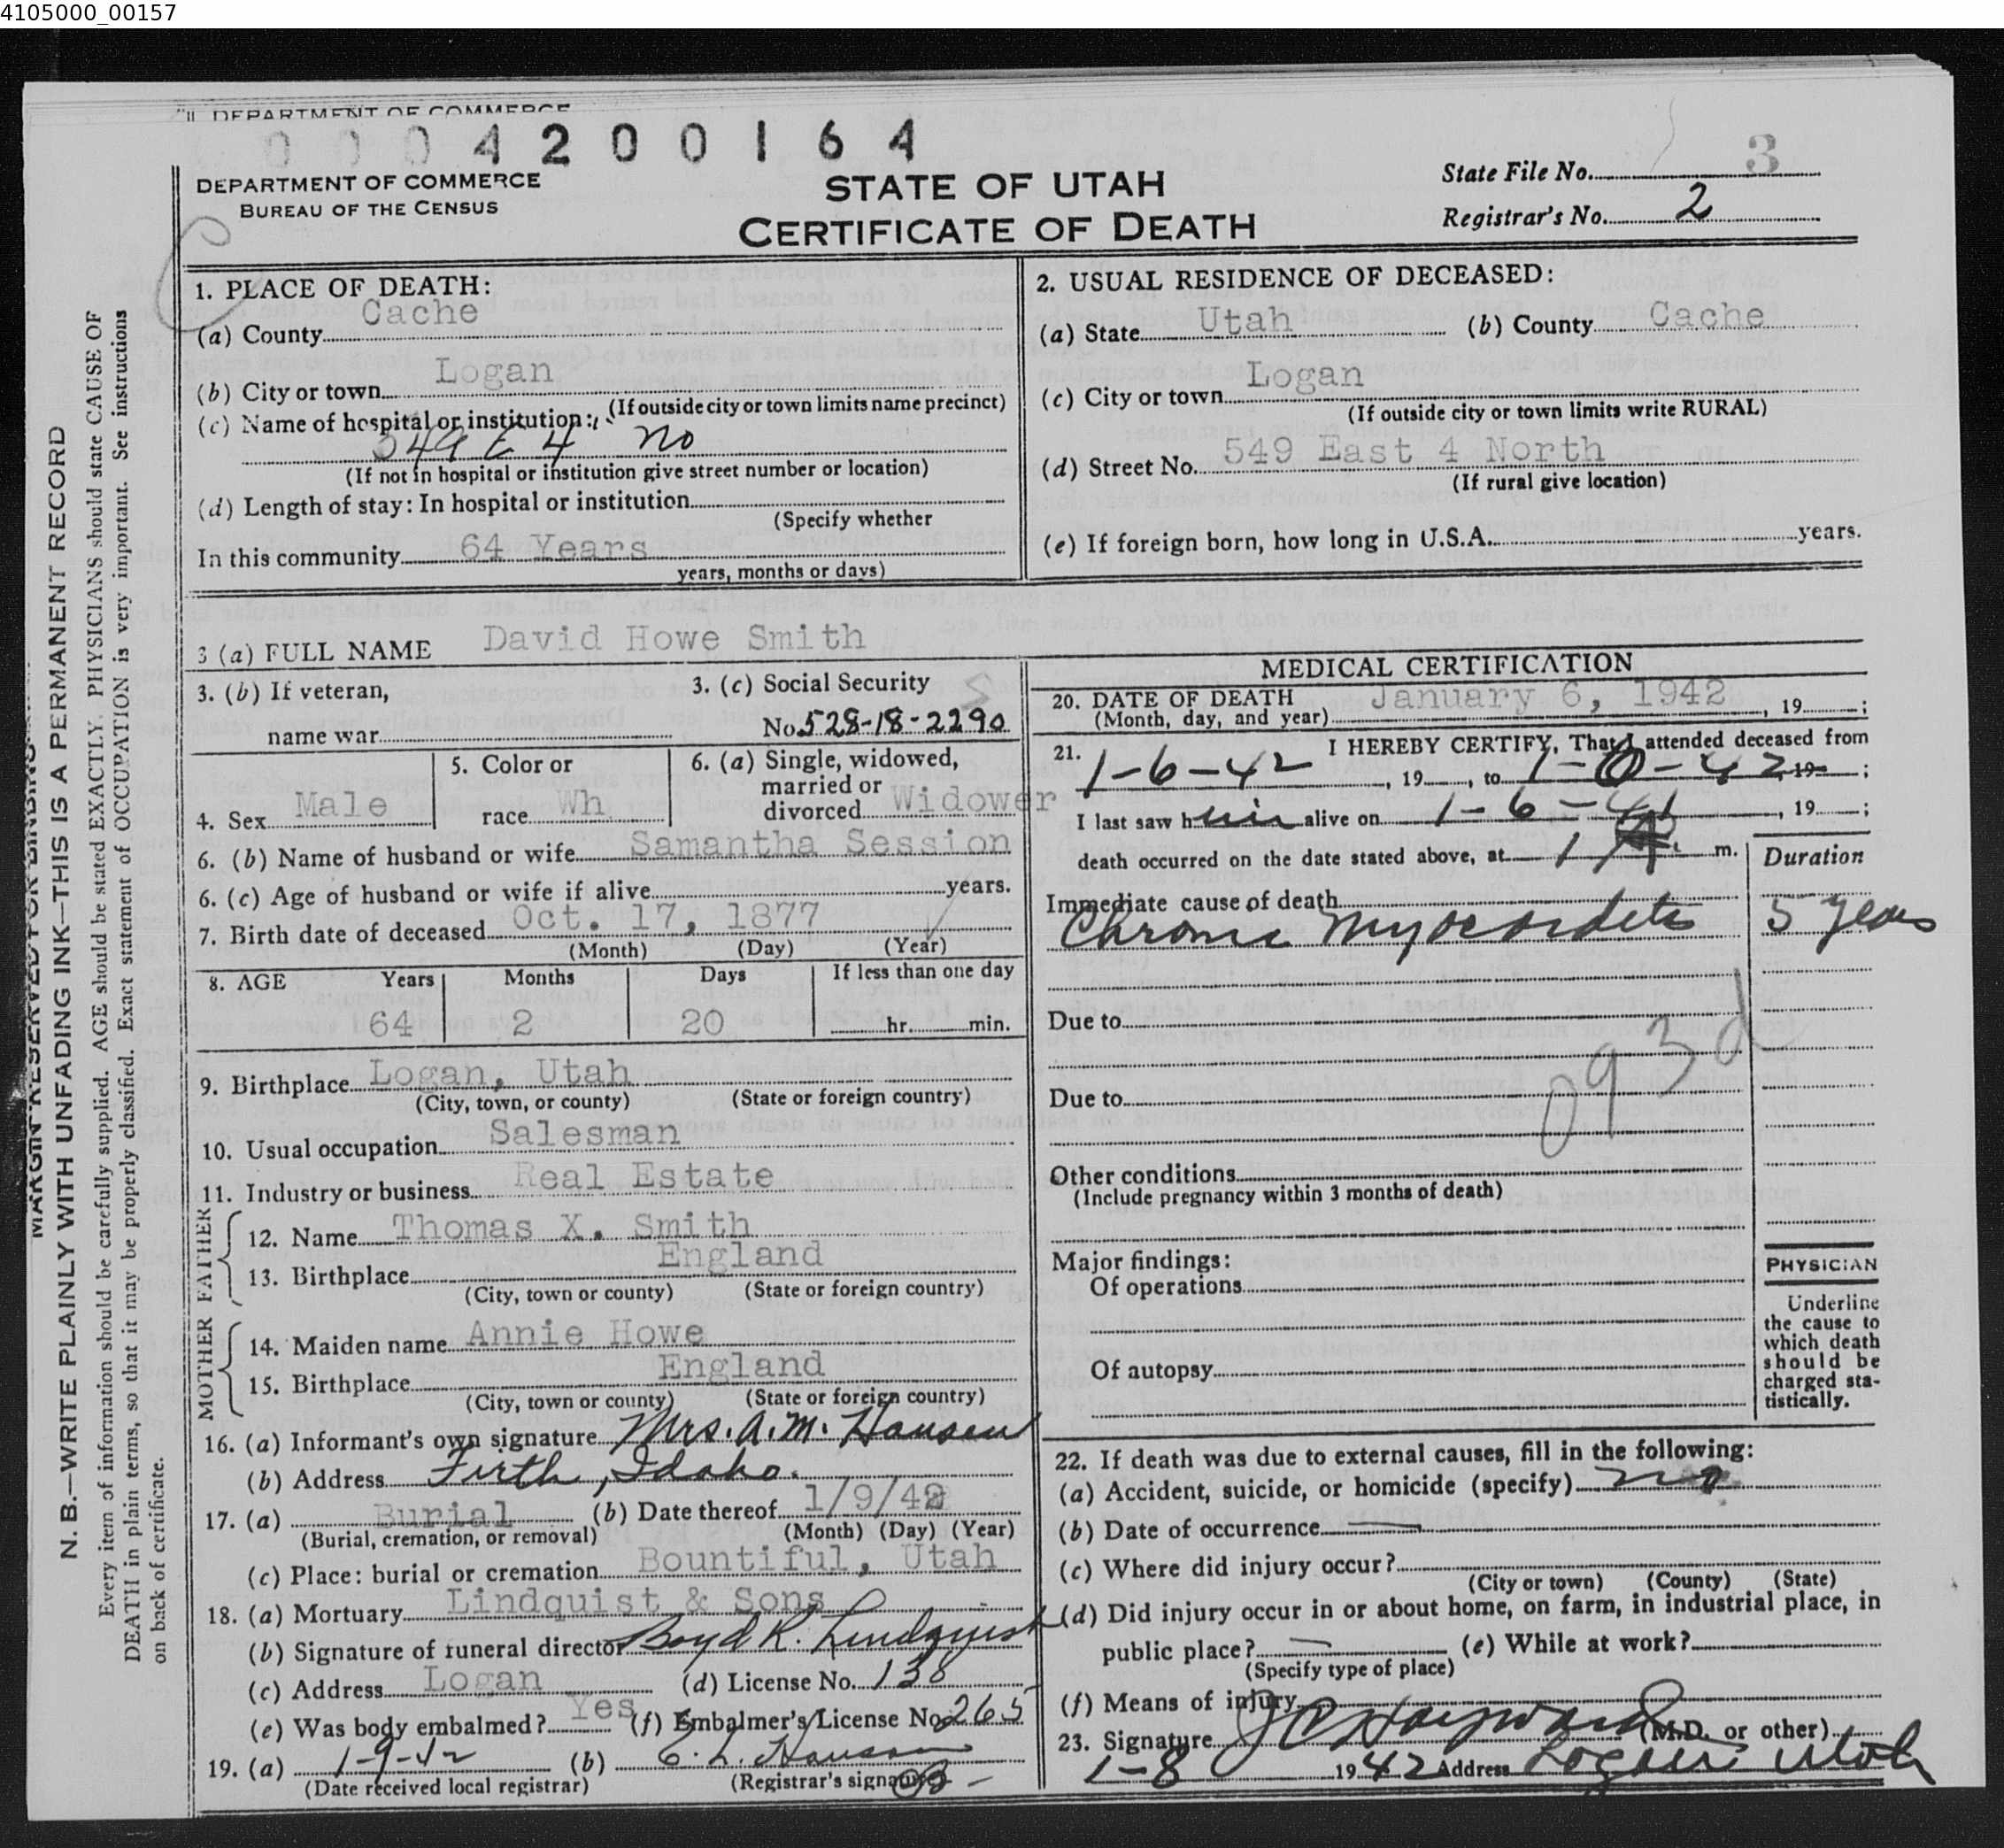 4105000_00157
DEPARTMENT OF COMMERCE
0004200164
DEPARTMENT OF COMMERCE
BUREAU OF THE CENSUS
STATE OF UTAH
CERTIFICATE OF DEATH
State File No. 3
Registrar's No. 2
MARGIN RESERVED FOR BINDING
N. B.—WRITE PLAINLY WITH UNFADING INK—THIS IS A PERMANENT RECORD
Every item of information should be carefully supplied. AGE should be stated EXACTLY. PHYSICIANS should state CAUSE OF
DEATH in plain terms, so that it may be properly classified. Exact statement of OCCUPATION is very important. See instructions
on back of certificate.
1. PLACE OF DEATH:
(a) County Cache
(b) City or town Logan
(If outside city or town limits name precinct)
(c) Name of hospital or institution:
549 E 4 No
(If not in hospital or institution give street number or location)
(d) Length of stay: In hospital or institution
(Specify whether
In this community 64 Years
years, months or days)
2. USUAL RESIDENCE OF DECEASED:
(a) State Utah (b) County Cache
(c) City or town Logan
(If outside city or town limits write RURAL)
(d) Street No. 549 East 4 North
(If rural give location)
(e) If foreign born, how long in U.S.A. years.
3 (a) FULL NAME David Howe Smith
3. (b) If veteran,
name war
3. (c) Social Security
No. 528-18-2290
4. Sex Male
5. Color or
race Wh
6. (a) Single, widowed,
married or
divorced Widower
6. (b) Name of husband or wife Samantha Session
6. (c) Age of husband or wife if alive years.
7. Birth date of deceased Oct. 17, 1877
(Month) (Day) (Year)
8. AGE Years Months Days If less than one day
64 2 20 hr. min.
9. Birthplace Logan, Utah
(City, town, or county) (State or foreign country)
10. Usual occupation Salesman
11. Industry or business Real Estate
FATHER
12. Name Thomas X. Smith
13. Birthplace England
(City, town or county) (State or foreign country)
MOTHER
14. Maiden name Annie Howe
15. Birthplace England
(City, town or county) (State or foreign country)
16. (a) Informant's own signature Mrs. A. M. Hansen
(b) Address Firth, Idaho.
17. (a) Burial (b) Date thereof 1/9/42
(Burial, cremation, or removal) (Month) (Day) (Year)
(c) Place: burial or cremation Bountiful, Utah
18. (a) Mortuary Lindquist & Sons
(b) Signature of funeral director Boyd R. Lindquist
(c) Address Logan (d) License No. 138
(e) Was body embalmed? Yes (f) Embalmer's License No. 265
19. (a) 1-9-42 (b)
(Date received local registrar) (Registrar's signature)
MEDICAL CERTIFICATION
20. DATE OF DEATH January 6, 1942
(Month, day, and year) , 19 ;
21. I HEREBY CERTIFY, That I attended deceased from
1-6-42 , 19 , to 1-6-42 , 19 ;
I last saw him alive on 1-6-42 , 19 ;
death occurred on the date stated above, at 1 A. m.
Duration
Immediate cause of death
Chronic Myocardits 5 years
Due to
093d
Due to
Other conditions
(Include pregnancy within 3 months of death)
Major findings:
Of operations
Of autopsy
PHYSICIAN
Underline
the cause to
which death
should be
charged sta-
tistically.
22. If death was due to external causes, fill in the following:
(a) Accident, suicide, or homicide (specify) no
(b) Date of occurrence
(c) Where did injury occur?
(City or town) (County) (State)
(d) Did injury occur in or about home, on farm, in industrial place, in
public place? (e) While at work?
(Specify type of place)
(f) Means of injury
23. Signature J C Hayward (M.D. or other)
1-8 1942 Address Logan Utah